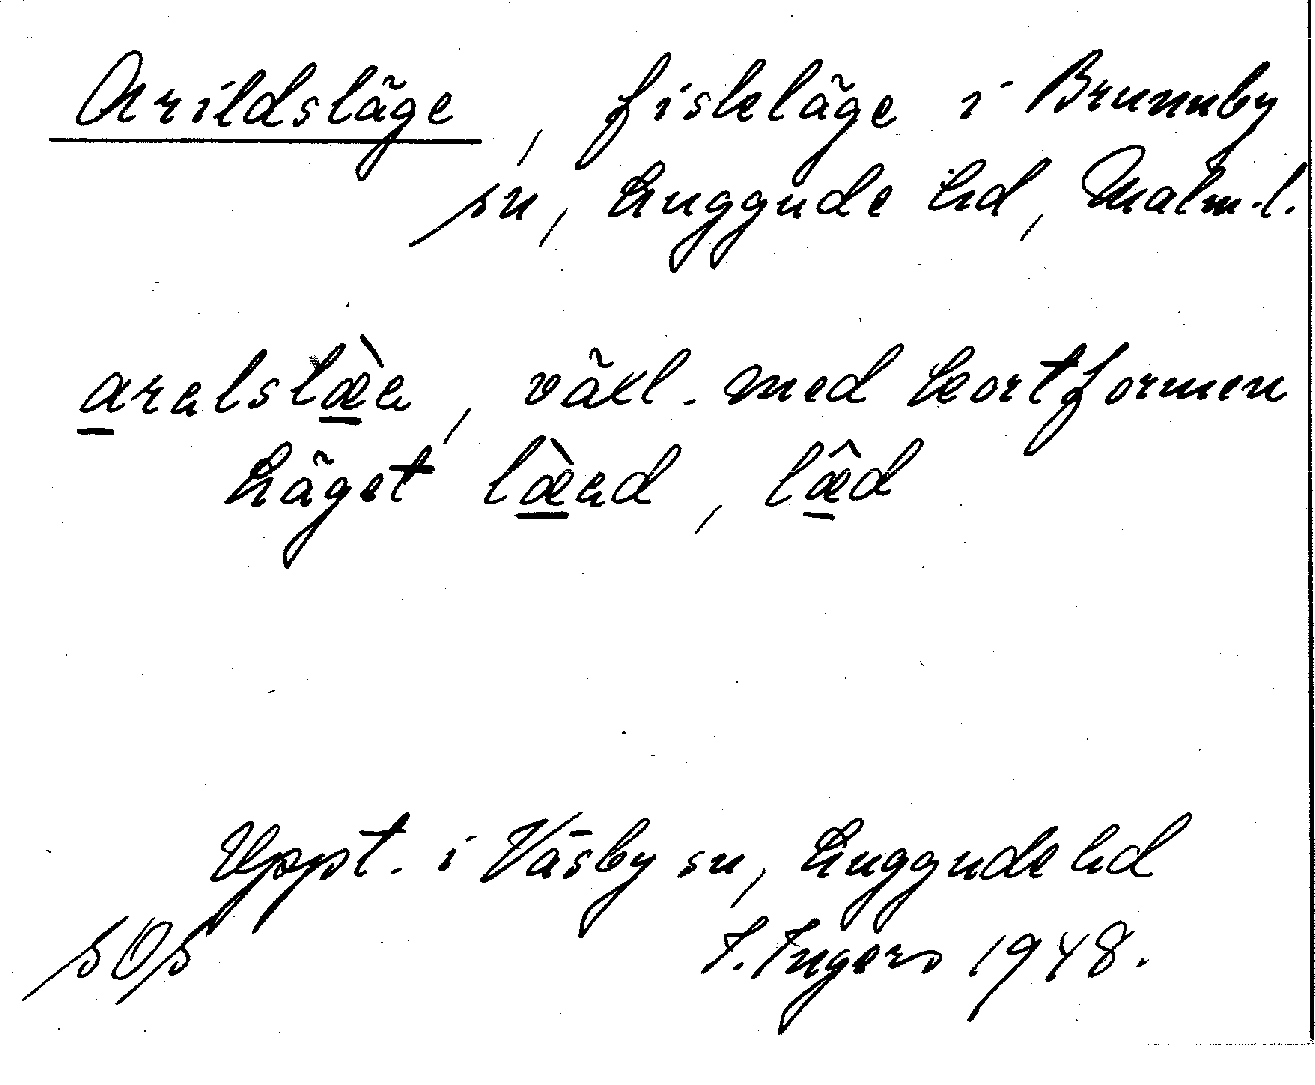 Arildsläge, fiskläge i Brunnby
sn, Luggude hd, Malm.l.
aralslæ̀a, växl. med kortformen
Läget læ̀ad, læ̂d
Uppt. i Väsby sn, Luggude hd
SOS I. Ingers 1948.